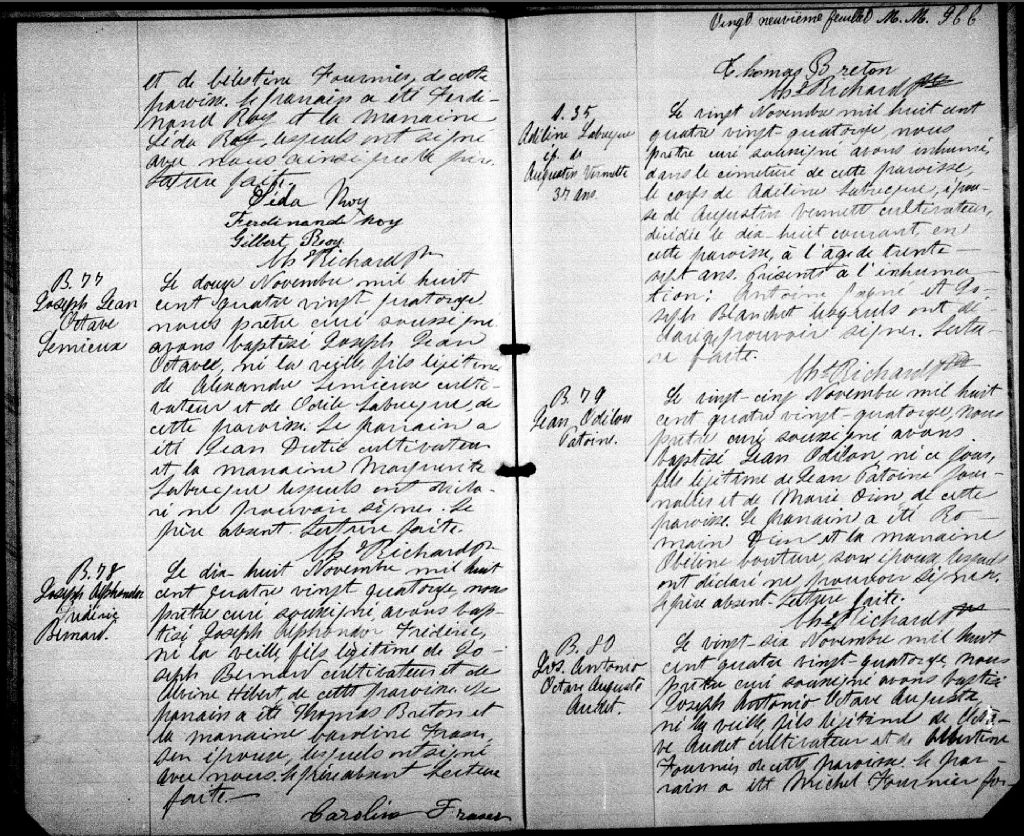 et de Célestine Fournier, de cette
paroisse. Le parrain a été Ferdi-
nand Roy et la marraine
Léda Roy, lesquels ont signé
avec nous ainsi que le père.
Lecture faite.
Léda Roy
Ferdinand Roy
Gilbert Roy
Chs Richard Ptre
B. 77
Joseph Jean
Octave
Lemieux
Le douze Novembre mil huit
cent quatre vingt quatorze,
nous prêtre curé soussigné
avons baptisé Joseph Jean
Octave, né la veille, fils légitime
de Alexandre Lemieux culti-
vateur et de Odile Labrecque, de
cette paroisse. Le parrain a
été Jean Dutil cultivateur
et la marraine Marguerite
Labrecque lesquels ont décla-
ré ne pouvoir signer. Le
père absent. Lecture faite.
Chs Richard Ptre
B. 78
Joseph Alphondor
Frédéric
Bernard.
Le dix-huit Novembre mil huit
cent quatre vingt quatorze, nous
prêtre curé soussigné, avons bap-
tisé Joseph Alphondor Frédéric,
né la veille, fils légitime de Jo-
seph Bernard cultivateur et de
Albine Hébert de cette paroisse. Le
parrain a été Thomas Breton et
la marraine Caroline Fraser,
son épouse, lesquels ont signé
avec nous. Le père absent Lecture
faite.—
Caroline Fraser
Vingt neuvième feuillet M. M. 966
Thomas Breton
Chs Richard Ptre
S. 35
Adéline Labrecque
ép. de
Augustin Vermette
37 ans.
Le vingt Novembre mil huit cent
quatre vingt-quatorze, nous
prêtre curé soussigné avons inhumé,
dans le cimetière de cette paroisse,
le corps de Adéline Labrecque, épou-
se de Augustin Vermett cultivateur,
décédée le dix-huit courant en
cette paroisse, à l'âge de trente
sept ans. Présents à l'inhuma-
tion: Antoine et Jo-
seph Blanchet lesquels ont dé-
claré ne pouvoir signer. Lectu-
re faite.
Chs Richard Ptre
B. 79
Jean Odilon
Patoine.
Le vingt-cinq Novembre mil huit
cent quatre vingt-quatorze, nous
prêtre curé soussigné avons
baptisé Jean Odilon né ce jour,
fils légitime de Jean Patoine jour-
nalier et de Marie Dion de cette
paroisse. Le parrain a été Ro-
main Dion et la marraine
Obéline Couture, son épouse, lesquels
ont déclaré ne pouvoir signer.
Le père absent. Lecture faite.
Chs Richard Ptre
B. 80
Jos. Antonio
Octave Auguste
Audet.
Le vingt-six Novembre mil huit
cent quatre vingt-quatorze, nous
prêtre curé soussigné avons baptisé
Joseph Antonio Octave Auguste
né la veille, fils légitime de Octa-
ve Audet cultivateur et de Albertine
Fournier de cette paroisse. Le par-
rain a été Michel Fournier for-